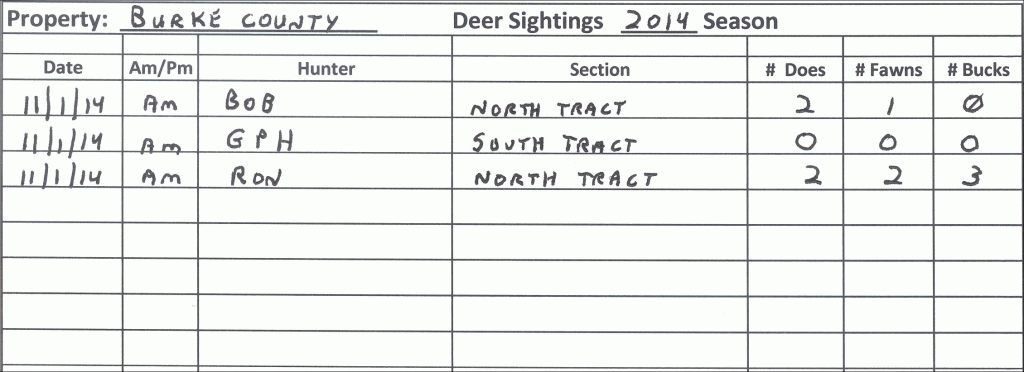 Property: BURKE COUNTY Deer Sightings 2014 Season
Date Am/Pm Hunter Section # Does # Fawns # Bucks
11/1/14 Am BOB NORTH TRACT 2 1 0
11/1/14 Am GPH SOUTH TRACT 0 0 0
11/1/14 Am RON NORTH TRACT 2 2 3